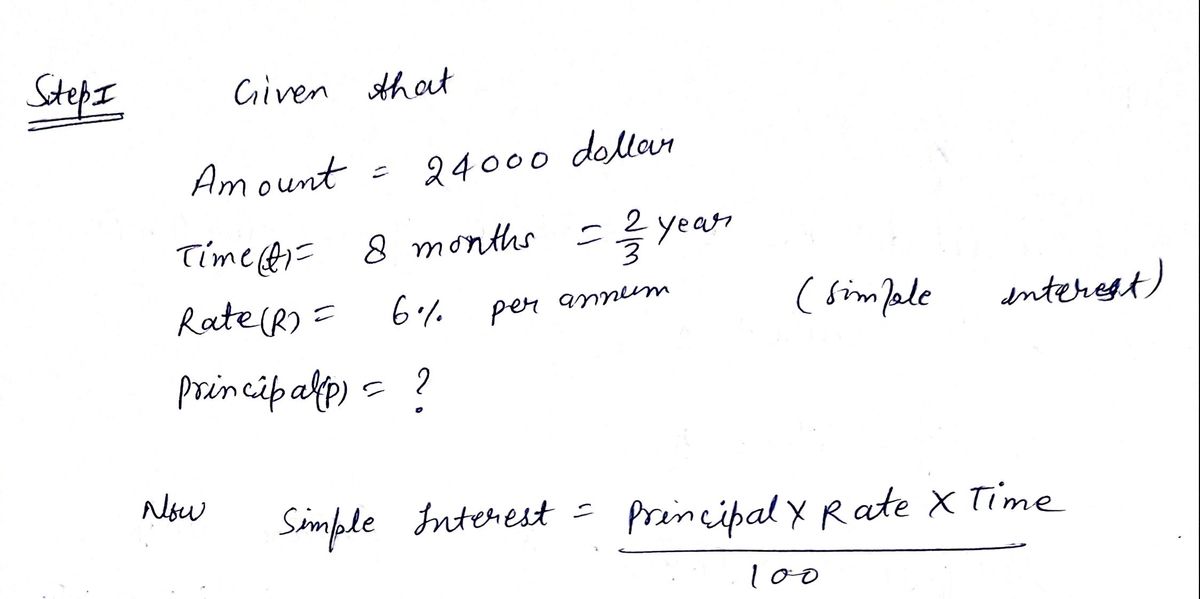 Step I Given that
Amount = 24000 dollar
Time(t)= 8 months = 2/3 year
Rate(R) = 6% per annum (simple interest)
Principal(p) = ?
Now Simple Interest = Principal X Rate X Time
100